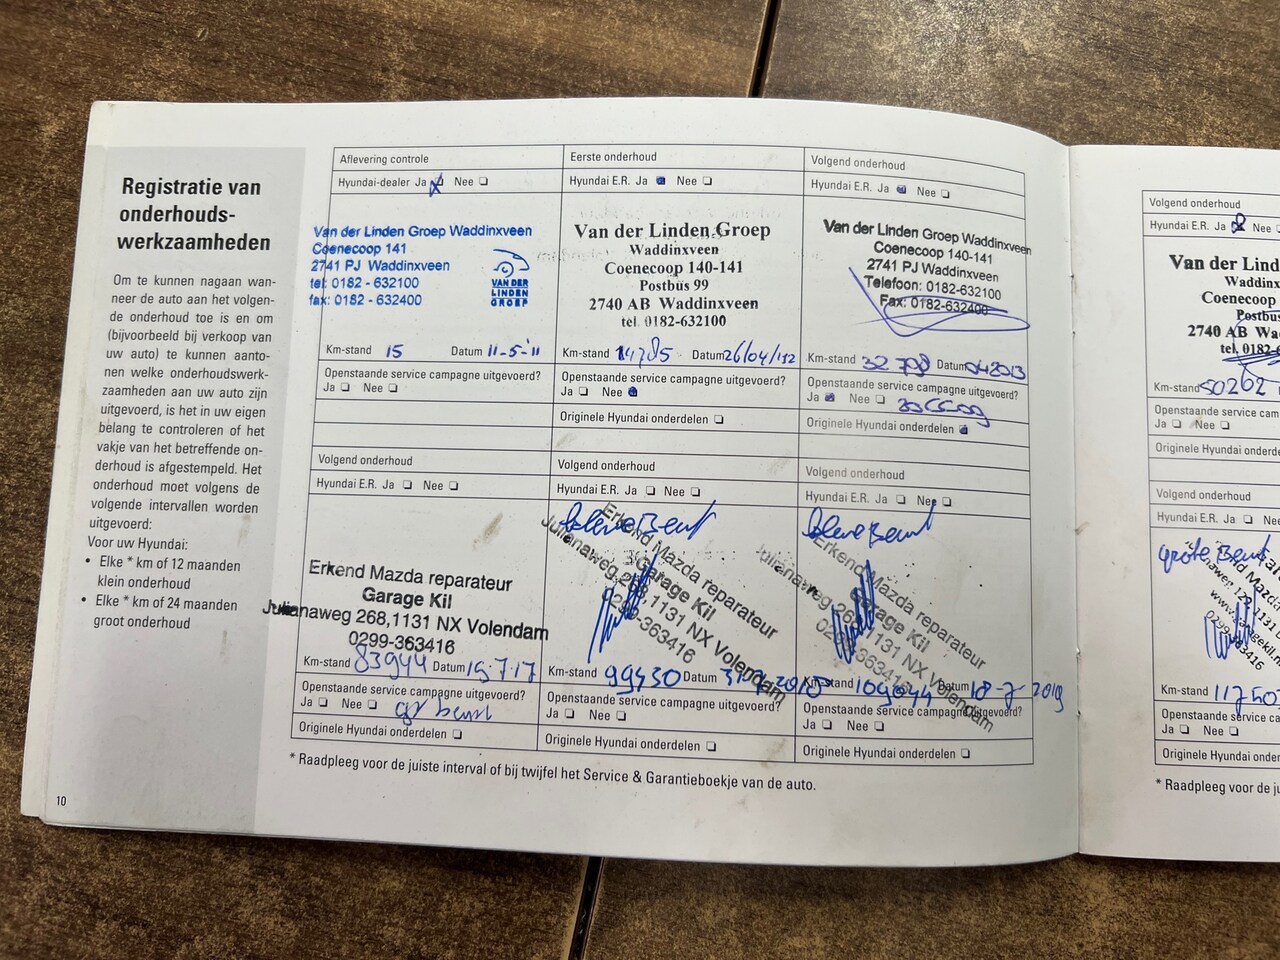 Registratie van
onderhouds-
werkzaamheden
Om te kunnen nagaan wan-
neer de auto aan het volgen-
de onderhoud toe is en om
(bijvoorbeeld bij verkoop van
uw auto) te kunnen aanto-
nen welke onderhoudswerk-
zaamheden aan uw auto zijn
uitgevoerd, is het in uw eigen
belang te controleren of het
vakje van het betreffende on-
derhoud is afgestempeld. Het
onderhoud moet volgens de
volgende intervallen worden
uitgevoerd:
Voor uw Hyundai:
• Elke * km of 12 maanden
klein onderhoud
• Elke * km of 24 maanden
groot onderhoud
10
Aflevering controle
Hyundai-dealer Ja Nee
Van der Linden Groep Waddinxveen
Coenecoop 141
2741 PJ Waddinxveen
tel: 0182 - 632100
fax: 0182 - 632400
VAN DER
LINDEN
GROEP
Km-stand 15 Datum 11-5-'11
Openstaande service campagne uitgevoerd?
Ja Nee
Eerste onderhoud
Hyundai E.R. Ja Nee
Van der Linden Groep
Waddinxveen
Coenecoop 140-141
Postbus 99
2740 AB Waddinxveen
tel. 0182-632100
Km-stand 14785 Datum 26/04/'12
Openstaande service campagne uitgevoerd?
Ja Nee
Originele Hyundai onderdelen
Volgend onderhoud
Hyundai E.R. Ja Nee
Van der Linden Groep Waddinxveen
Coenecoop 140-141
2741 PJ Waddinxveen
Telefoon: 0182-632100
Fax: 0182-632400
Km-stand 32 798 Datum 042013
Openstaande service campagne uitgevoerd?
Ja Nee
Originele Hyundai onderdelen
Volgend onderhoud
Hyundai E.R. Ja Nee
Erkend Mazda reparateur
Garage Kil
Julianaweg 268,1131 NX Volendam
0299-363416
Km-stand 83944 Datum 19-7-17
Openstaande service campagne uitgevoerd?
Ja Nee gr beurt
Originele Hyundai onderdelen
Volgend onderhoud
Hyundai E.R. Ja Nee
kleine Beurt
Erkend Mazda reparateur
Garage Kil
Julianaweg 268,1131 NX Volendam
0299-363416
Km-stand 99430 Datum
Openstaande service campagne uitgevoerd?
Ja Nee
Originele Hyundai onderdelen
Volgend onderhoud
Hyundai E.R. Ja Nee
kleine Beurt
Erkend Mazda reparateur
Garage Kil
Julianaweg 268,1131 NX Volendam
0299-363416
Km-stand 109044 Datum 18-7-2019
Openstaande service campagne uitgevoerd?
Ja Nee
Originele Hyundai onderdelen
* Raadpleeg voor de juiste interval of bij twijfel het Service & Garantieboekje van de auto.
Volgend onderhoud
Hyundai E.R. Ja Nee
Van der Lind
Waddinx
Coenecoop
Postbus
2740 AB Wa
tel. 0182-6
Km-stand 50262
Openstaande service cam
Ja Nee
Originele Hyundai onderde
Volgend onderhoud
Hyundai E.R. Ja Nee
grote Beurt
Km-stand
Openstaande service ca
Ja Nee
Originele Hyundai onde
* Raadpleeg voor de ju